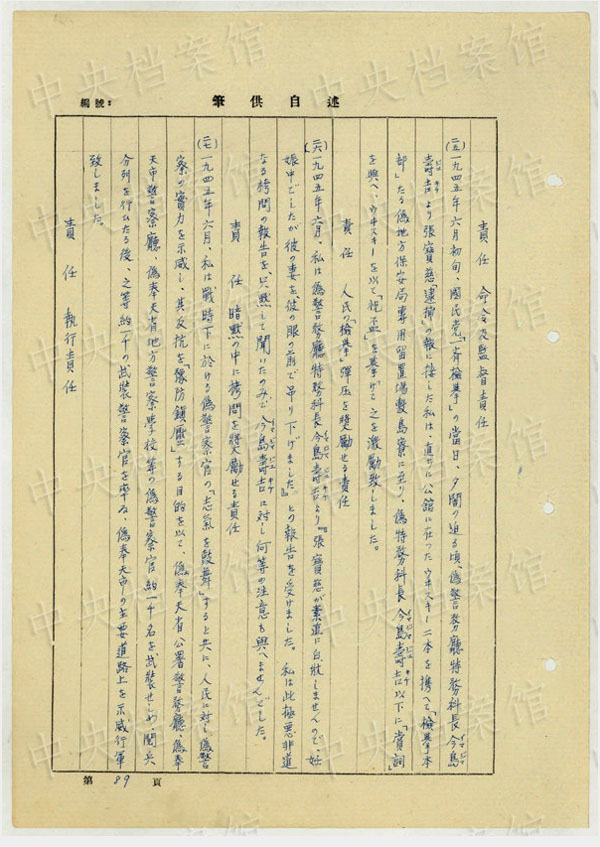 述自供筆
編號:
責任 命令及監督責任
(二五)一九四五年六月初旬、國民党「一斉檢挙」の當日、夕闇の迫る頃、偽警務廳特務科長今島
壽吉より張寶慈「逮捕」の報に接した私は、直ちに公館に在つたウヰスキー二本を携へて「檢挙本
部」たる偽地方保安局専用留置場 島寮に至り、偽特務科長今島壽吉以下に「賞詞」
を與へ、ウヰスキーを以て「祝盃」を挙げて之を激勵致しました。
責任 人民の「檢挙」彈压を奨勵せる責任
(二六)一九四五年六月、私は偽警務廳特務科長今島壽吉より『張寶慈が素直に白狀しませんので、妊
娠中でしたが彼の妻を、彼の眼の前で吊り下げました』との報告を受けました。私は此極悪非道
なる拷問の報告を、只黙して聞いたのみで今島壽吉に対し何等の注意も與へませんでした。
責任 暗黙の中に拷問を奨勵せる責任
(二七)一九四五年六月、私は戰時下に於ける偽警察官の「志氣を鼓舞」すると共に、人民に対し偽警
察の實力を示威し、其反抗を「豫防鎮壓」する目的を以て、偽奉天省公署警務廳、偽奉
天市警察廳、偽奉天省地方警察学校等の偽警察官約一千名を武装せしめ、閲兵
分列を行ひたる後、之等約一千の武装警察官を率ゐ、偽奉天市の主要道路上を示威行軍
致しました。
責任 執行責任
第 89 頁
中央档案馆